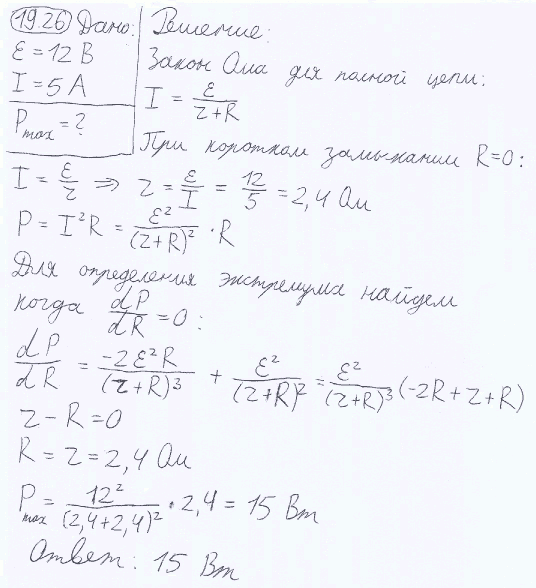 19.26 Дано: Решение:
ε = 12 В
Закон Ома для полной цепи:
I = 5 А
I = ε/(r+R)
Pmax = ?
При коротком замыкании R=0:
I = ε/r ⇒ r = ε/I = 12/5 = 2,4 Ом
P = I²R = ε²/(r+R)² · R
Для определения экстремума найдем
когда dP/dR = 0:
dP/dR = -2ε²R/(r+R)³ + ε²/(r+R)² = ε²/(r+R)³ (-2R+r+R)
r - R = 0
R = r = 2,4 Ом
Pmax = 12²/(2,4+2,4)² · 2,4 = 15 Вт
Ответ: 15 Вт